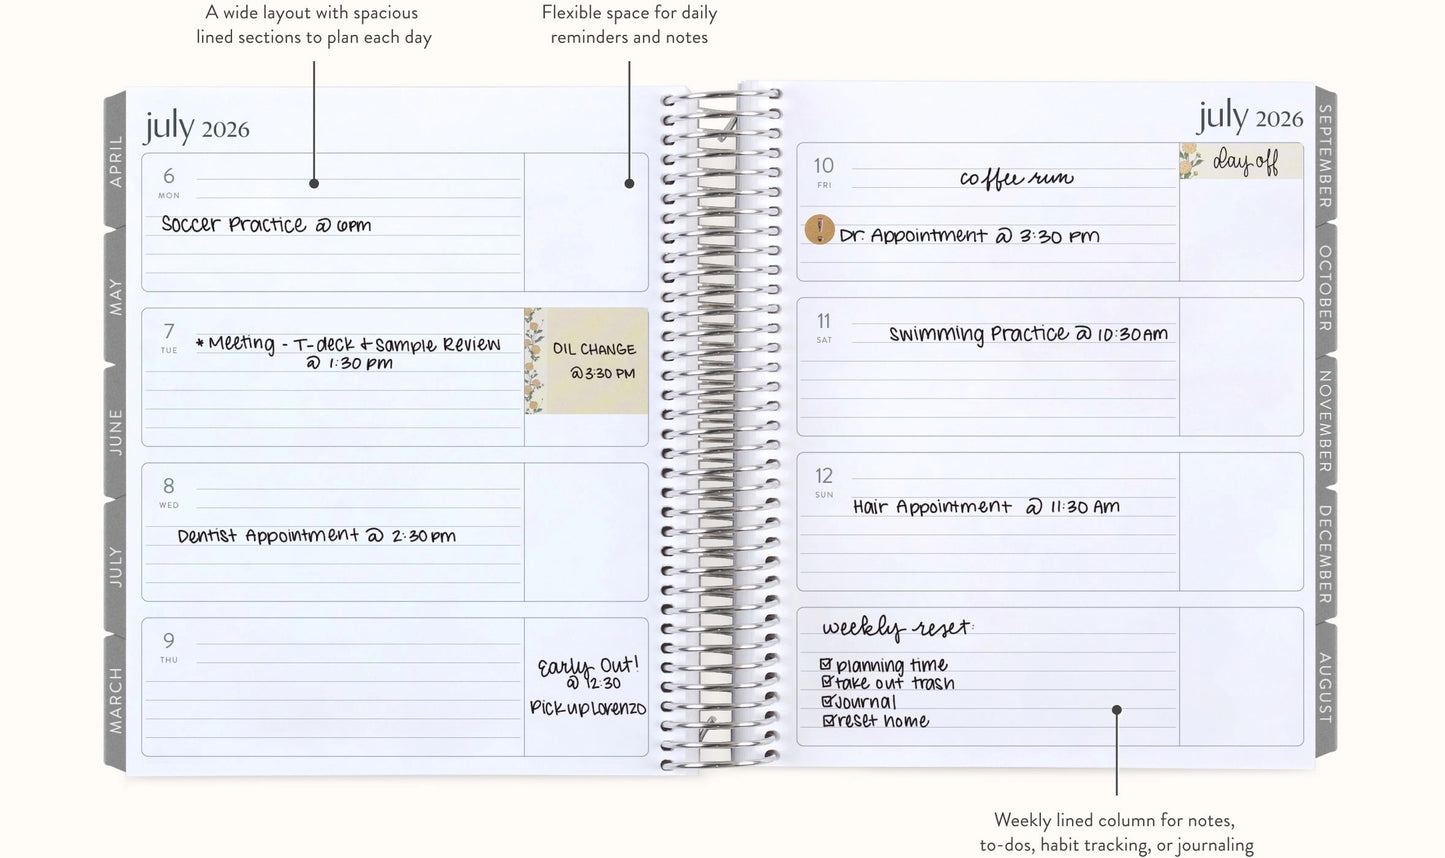 A wide layout with spacious
lined sections to plan each day
Flexible space for daily
reminders and notes
july 2026
6
MON
Soccer Practice @ 6pm
7
TUE
* Meeting - T-deck & Sample Review
@ 1:30 pm
OIL CHANGE
@ 3:30 PM
8
WED
Dentist Appointment @ 2:30 pm
9
THU
Early Out!
@ 12:30
Pick up Lorenzo
APRIL
MAY
JUNE
JULY
MARCH
july 2026
10
FRI
coffee run
day off
! Dr. Appointment @ 3:30 PM
11
SAT
Swimming Practice @ 10:30 AM
12
SUN
Hair Appointment @ 11:30 Am
weekly reset:
☑ planning time
☑ take out trash
☑ Journal
☑ reset home
SEPTEMBER
OCTOBER
NOVEMBER
DECEMBER
AUGUST
Weekly lined column for notes,
to-dos, habit tracking, or journaling